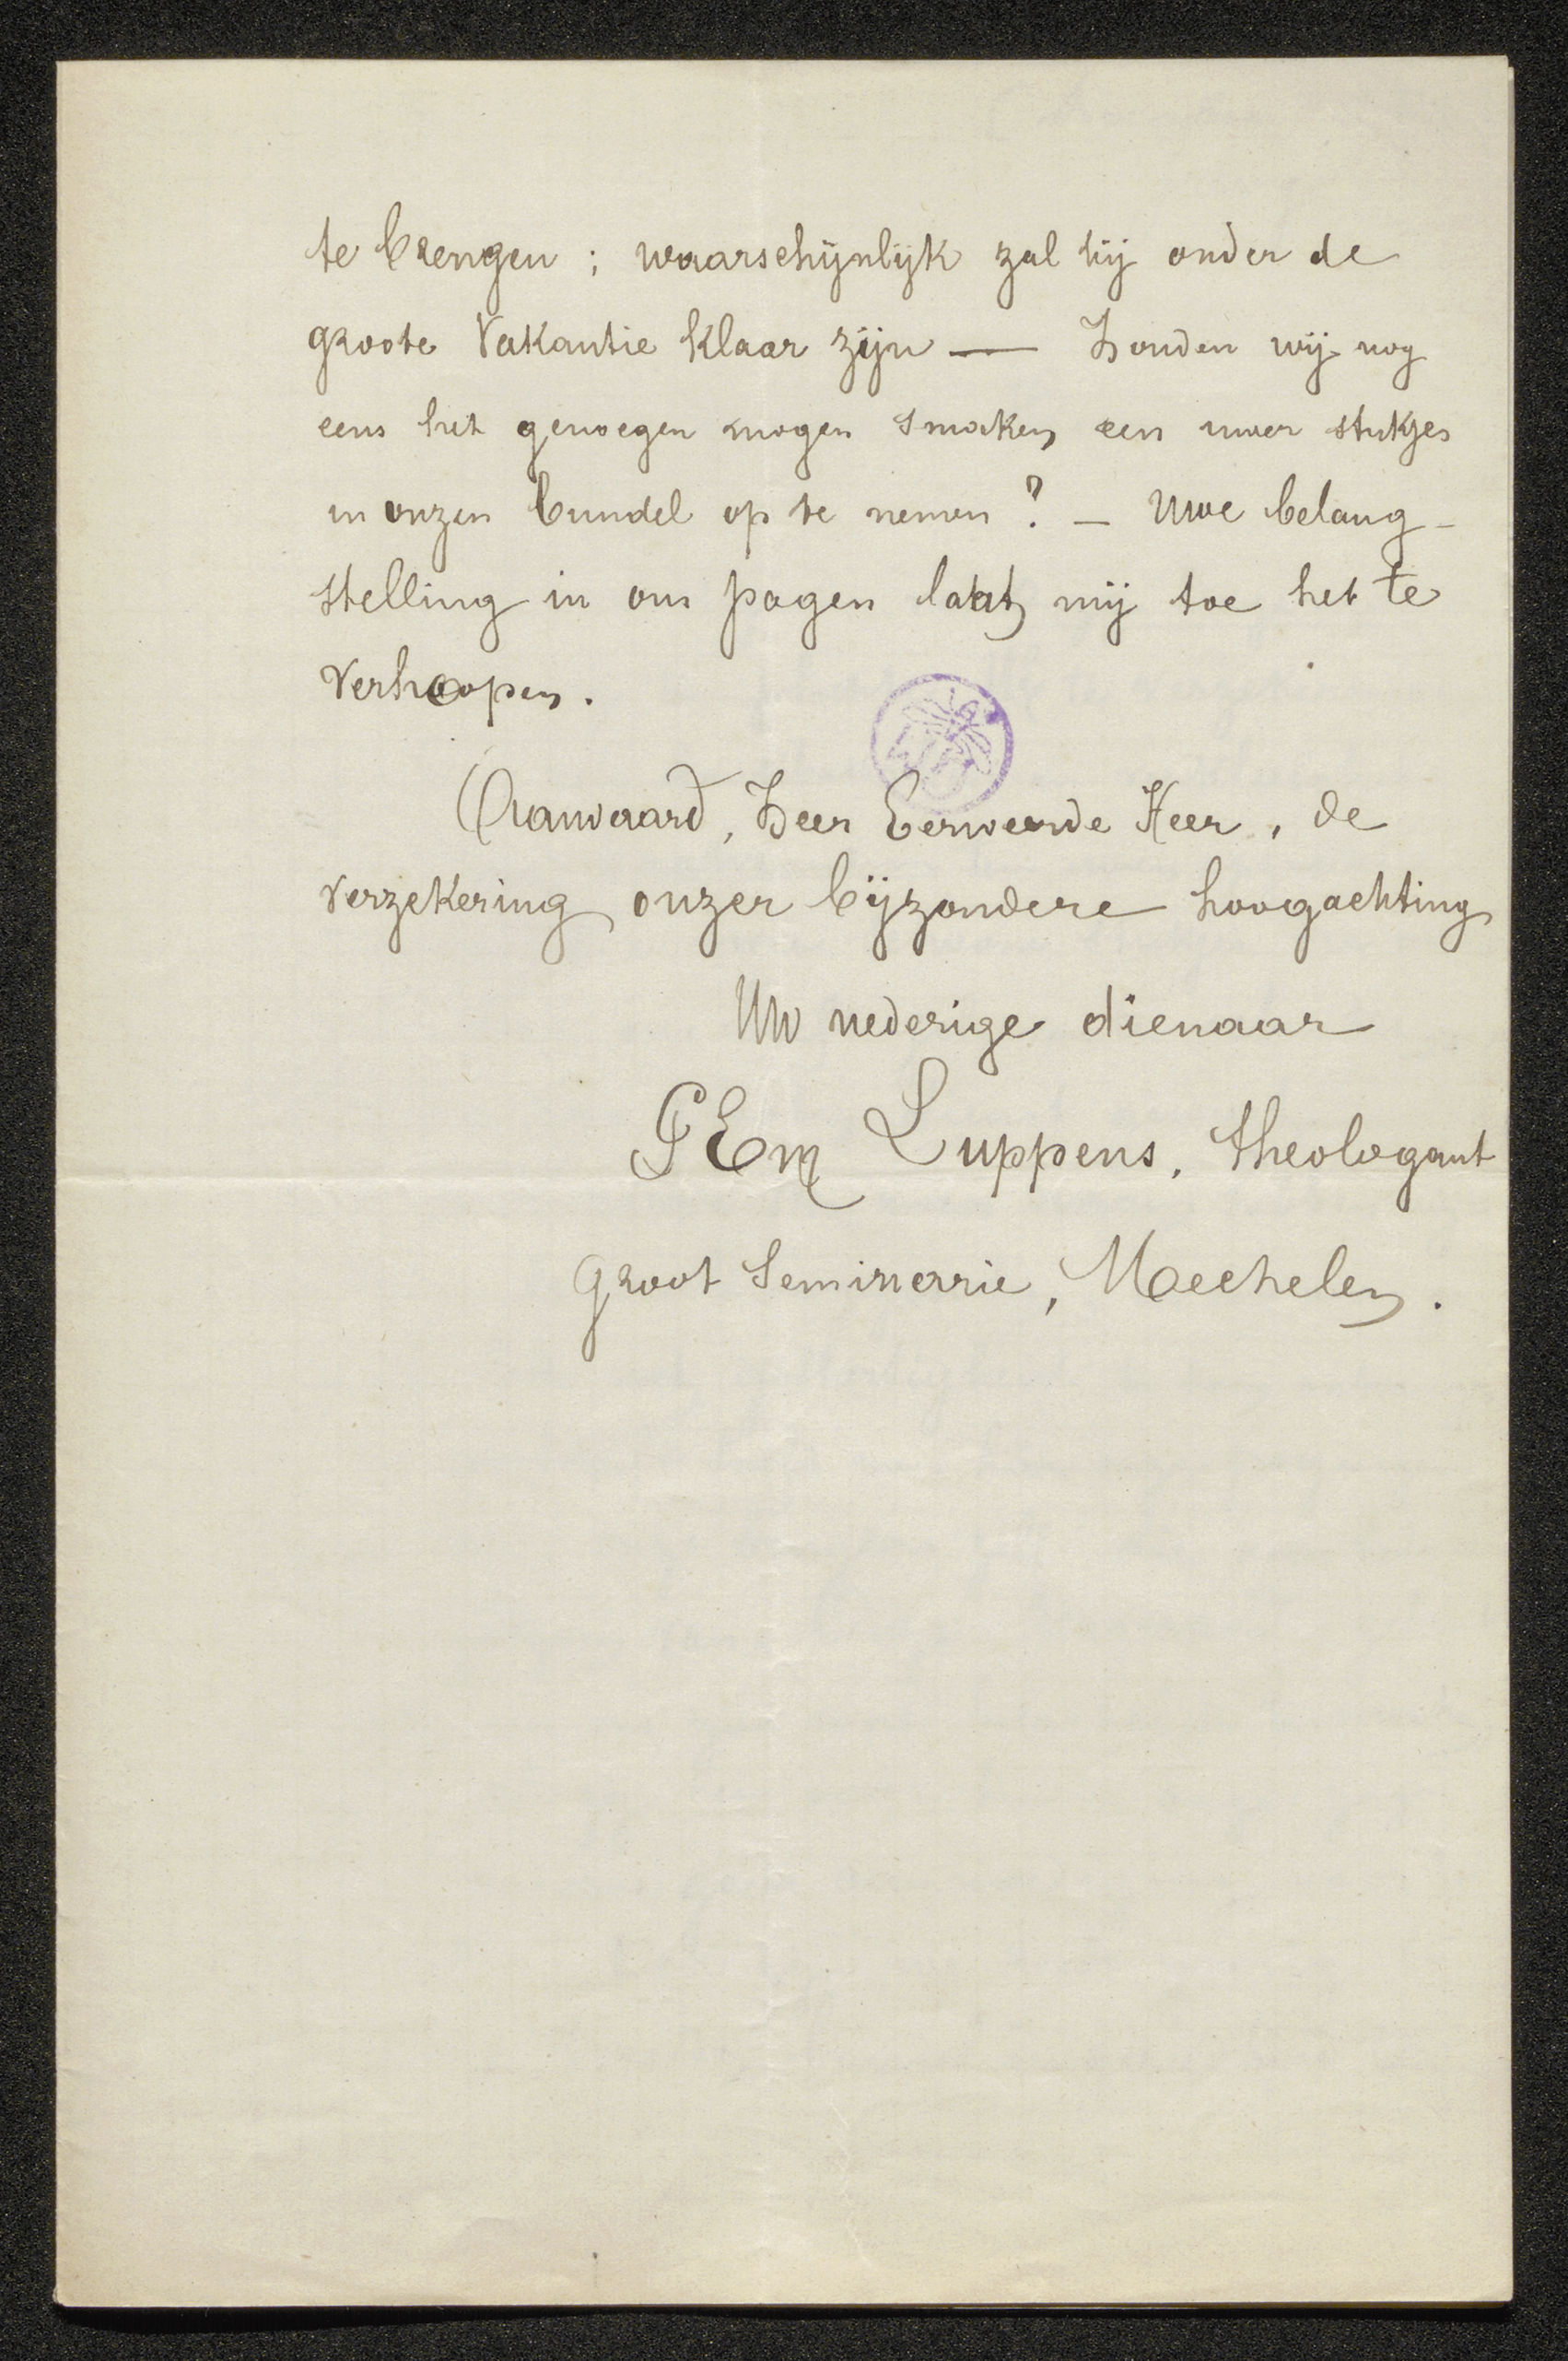 te brengen ; waarschijnlijk zal hij onder de
groote Vakantie klaar zijn — Zouden wij nog
eens het genoegen mogen smaken een uwer stukjes
in onzen bundel op te nemen ? – Uwe belang-
stelling in ons pogen laat mij toe het te
verhoopen.
Aanvaard, Zeer Eerweerde Heer, de
verzekering onzer bijzondere hoogachting
Uw nederige dienaar
Em Luppens, theologant
Groot Seminarie, Mechelen.